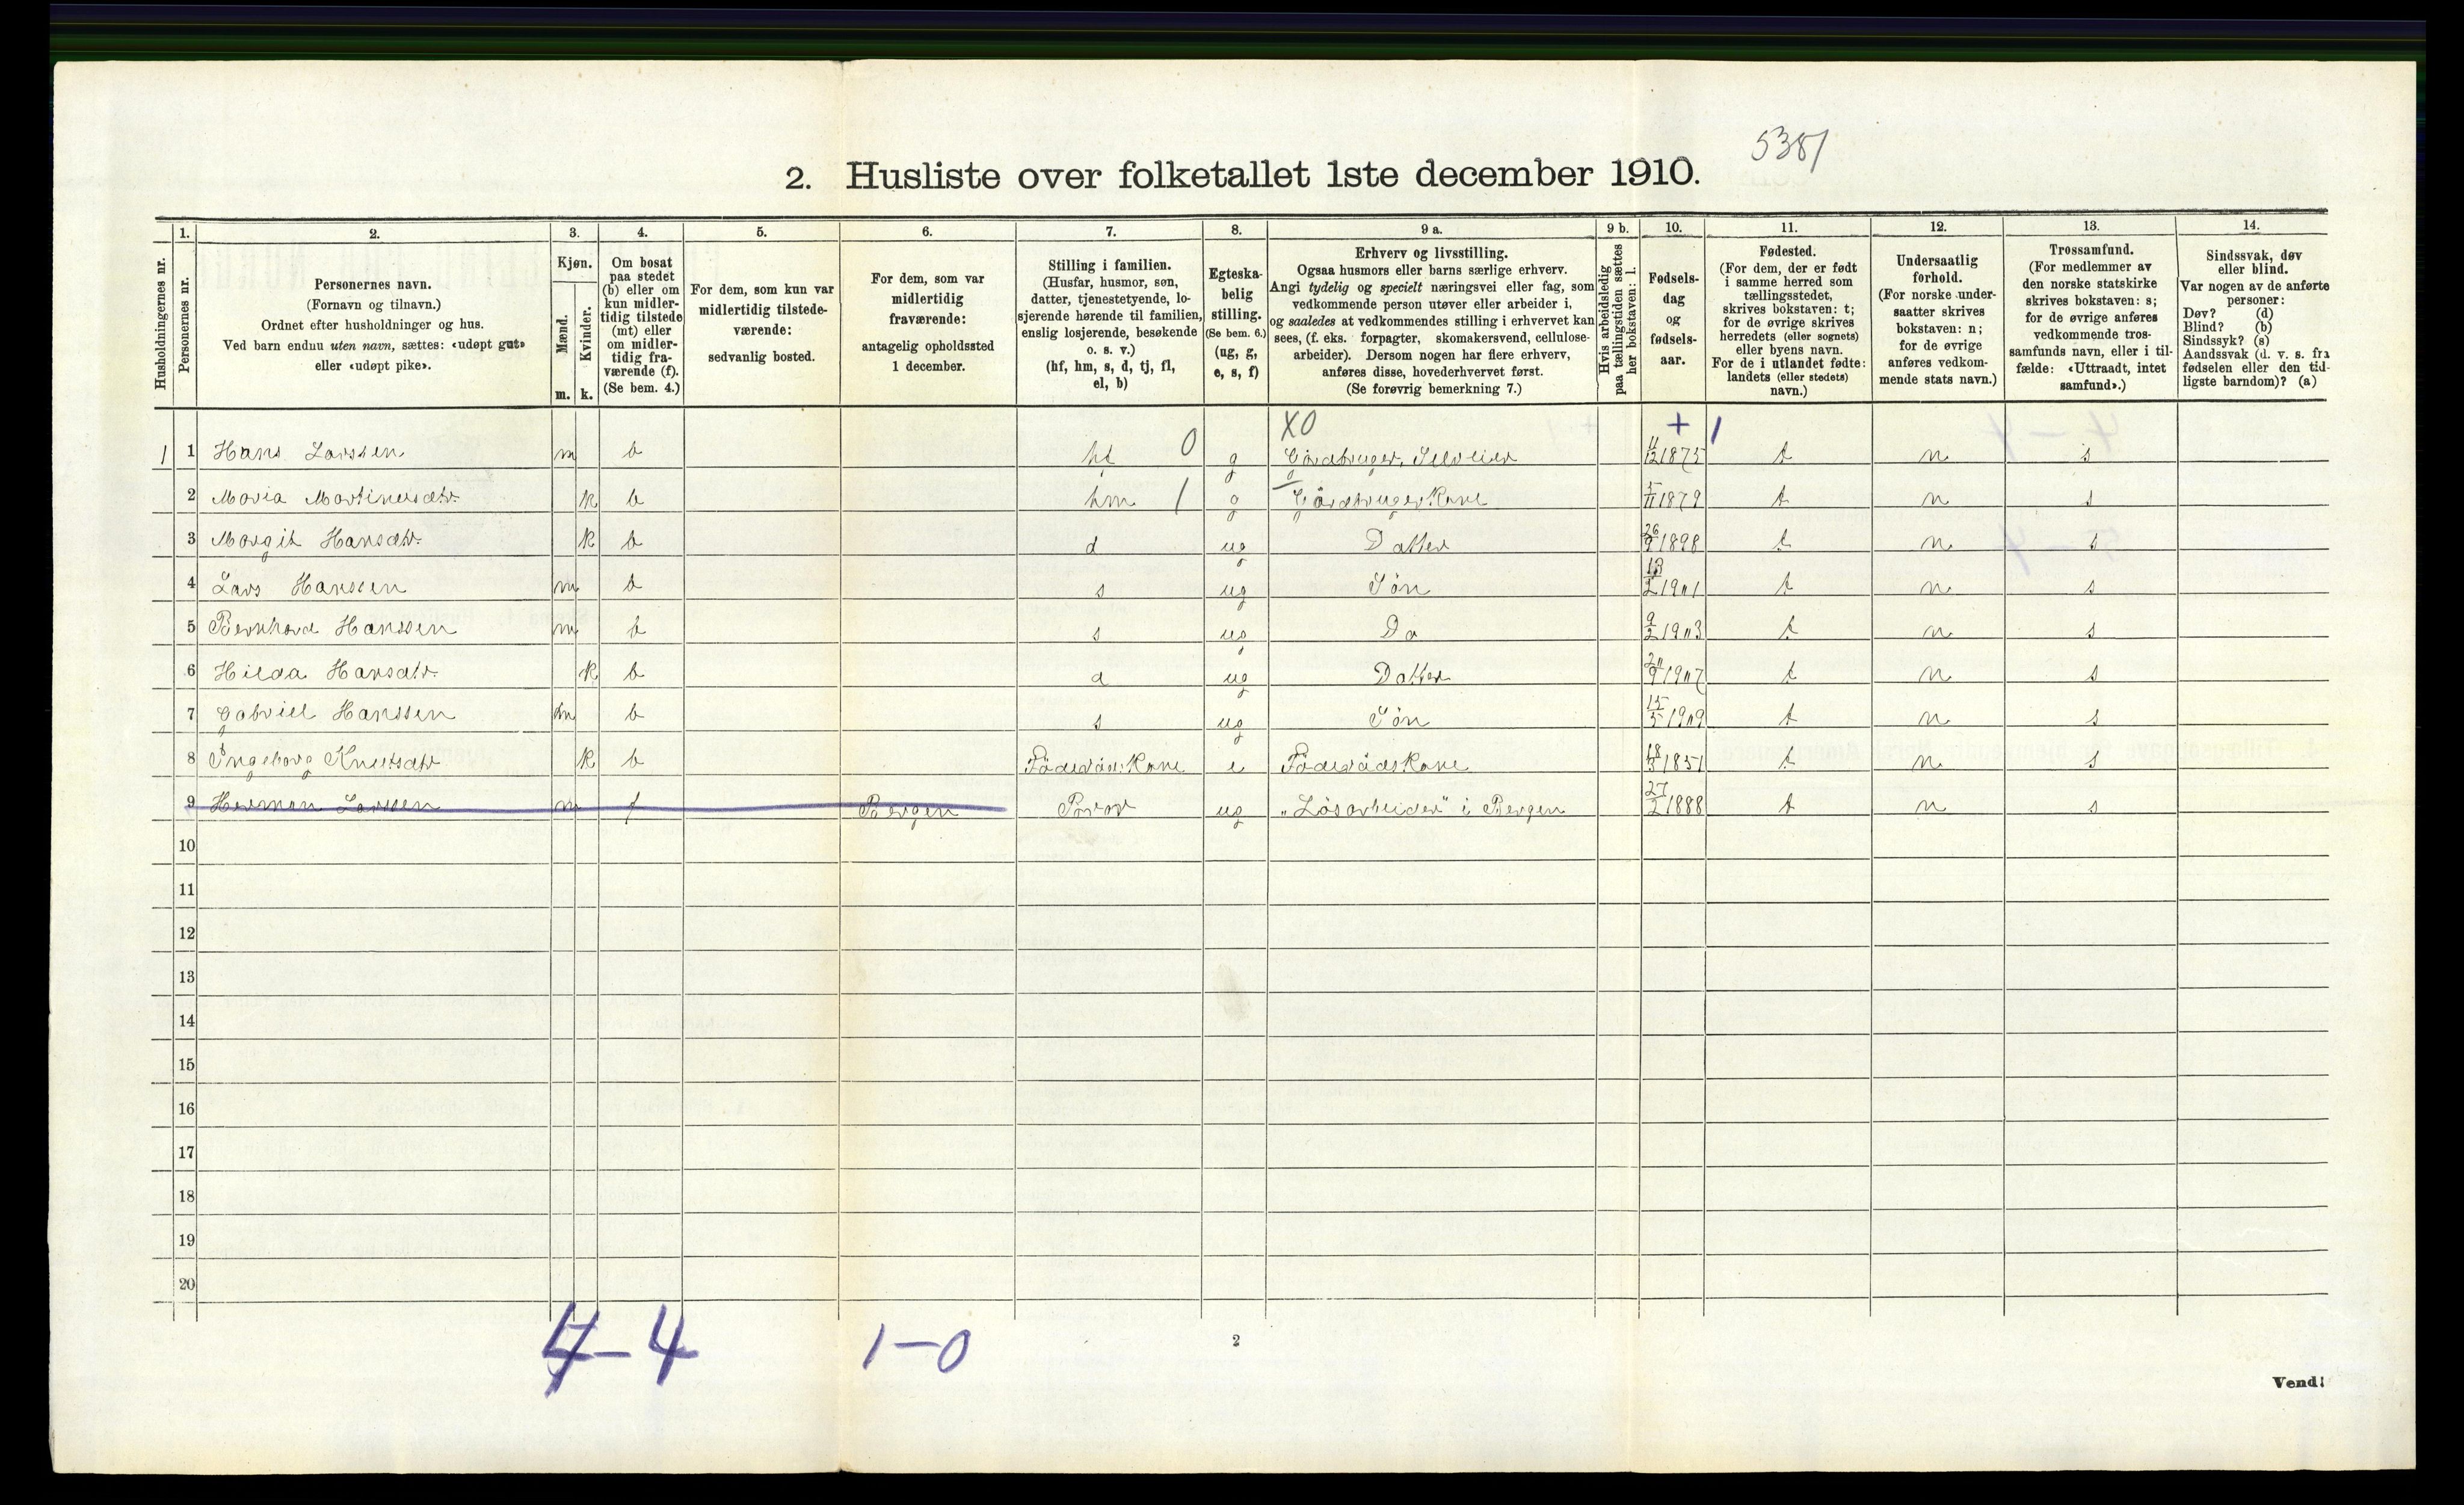 5381
2. Husliste over folketallet 1ste december 1910.
Husholdningernes nr.
1.
Personernes nr.
2.
Personernes navn.
(Fornavn og tilnavn.)
Ordnet efter husholdninger og hus.
Ved barn endnu uten navn, sættes: «udøpt gut»
eller «udøpt pike».
3.
Kjøn.
Mænd.
Kvinder.
m. k.
4.
Om bosat
paa stedet
(b) eller om
kun midler-
tidig tilstede
(mt) eller
om midler-
tidig fra-
værende (f).
(Se bem. 4.)
5.
For dem, som kun var
midlertidig tilstede-
værende:
sedvanlig bosted.
6.
For dem, som var
midlertidig
fraværende:
antagelig opholdssted
1 december.
7.
Stilling i familien.
(Husfar, husmor, søn,
datter, tjenestetyende, lo-
sjerende hørende til familien,
enslig losjerende, besøkende
o. s. v.)
(hf, hm, s, d, tj, fl,
el, b)
8.
Egteska-
belig
stilling.
(Se bem. 6.)
(ug, g,
e, s, f)
9 a.
Erhverv og livsstilling.
Ogsaa husmors eller barns særlige erhverv.
Angi tydelig og specielt næringsvei eller fag, som
vedkommende person utøver eller arbeider i,
og saaledes at vedkommendes stilling i erhvervet kan
sees, (f. eks. forpagter, skomakersvend, cellulose-
arbeider). Dersom nogen har flere erhverv,
anføres disse, hovederhvervet først.
(Se forøvrig bemerkning 7.)
9 b.
Hvis arbeidsledig
paa tællingstiden sættes
her bokstaven: l.
10.
Fødsels-
dag
og
fødsels-
aar.
11.
Fødested.
(For dem, der er født
i samme herred som
tællingsstedet,
skrives bokstaven: t;
for de øvrige skrives
herredets (eller sognets)
eller byens navn.
For de i utlandet fødte:
landets (eller stedets)
navn.)
12.
Undersaatlig
forhold.
(For norske under-
saatter skrives
bokstaven: n;
for de øvrige
anføres vedkom-
mende stats navn.)
13.
Trossamfund.
(For medlemmer av
den norske statskirke
skrives bokstaven: s;
for de øvrige anføres
vedkommende tros-
samfunds navn, eller i til-
fælde: «Uttraadt, intet
samfund».)
14.
Sindssvak, døv
eller blind.
Var nogen av de anførte
personer:
Døv? (d)
Blind? (b)
Sindssyk? (s)
Aandssvak (d. v. s. fra
fødselen eller den tid-
ligste barndom)? (a)
XO + 1
1 1 Hans Larssen m b hf 0 g Gårdbruger, Selveier 4/12 1875 t n s
2 Maria Martinusdtr. k b hm 1 g Gårdbruger Kone 5/11 1879 t n s
3 Margit Hansdtr. k b d ug Datter 26/9 1898 t n s
4 Lars Hanssen m b s ug Søn 1901 t n s
5 Bernhard Hanssen m b s ug Do 9/2 1903 t n s
6 Hilda Hansdtr. k b d ug Datter 20/9 1907 t n s
7 Gabriel Hanssen m b s ug Søn 15/5 1909 t n s
8 Ingeborg Knutsdtr k b Föderåds Kone e Föderådskone 18/5 1851 t n s
9 Herman Larssen m f Bergen Bror ug "Løsarbeider" i Bergen 27/2 1888 t n s
10
11
12
13
14
15
16
17
18
19
20
4-4 1-0
2
Vend!